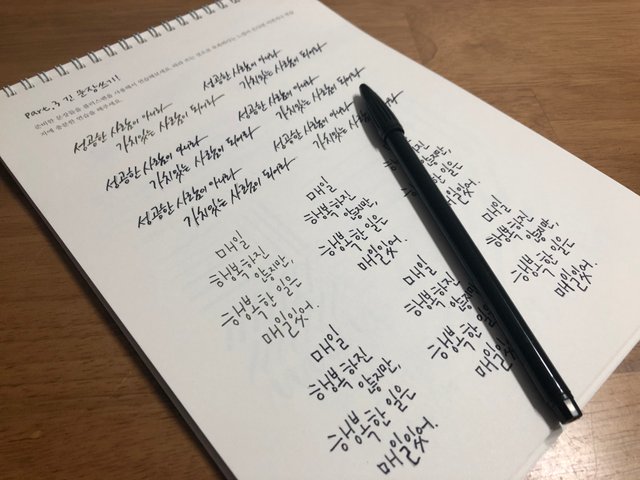 part.3 긴 문장쓰기!
준비된 문장들을 플러스펜을 사용해서 연습해보세요. 따라 쓰는 것으로
충분한 연습을 해주세요.
성공한 사람이 아니라
가치있는 사람이 되어라
성공한 사람이 아니라
가치있는 사람이 되어라
성공한 사람이 아니라
가치있는 사람이 되어라
성공한 사람이 아니라
가치있는 사람이 되어라
성공한 사람이 아니라
가치있는 사람이 되어라
성공한 사람이 아니라
가치있는 사람이 되어라
매일
행복하진
않지만,
행복한 일은
매일있어.
매일
행복하진
않지만,
행복한 일은
매일있어.
않지만,
일은
매일있어.
매일
행복하진
않지만,
행복한 일은
매일있어.
매일
행복하진
않지만,
행복한 일은
매일있어.
매일
행복하진
않지만,
행복한 일은